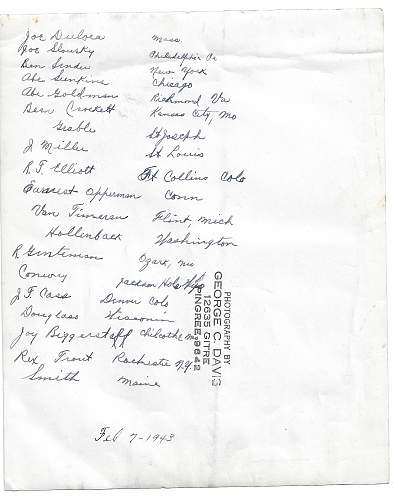 Joe Mass.
Joe Slousky Philadelphia Pa
Ben Sender New York
Abe Sunkins Chicago
Abe Goldman Richmond Va
Bern Crockett Kansas City, Mo
Gable St Joseph
J. Miller St Louis
R. T. Elliott Ft Collins Colo
Opperman Conn
Van Timeran Flint, Mich
Hollenback Washington
R Ozark, Mo
Conway Jackson Hole Wyo
J. F. Cass Denver Colo
Douglass Wisconsin
Joy Biggerstaff Chilcothe Mo
Rex Trout Rochester N.Y.
Smith Maine
Feb 7-1943
PHOTOGRAPHY BY
GEORGE C. DAVIS
12635 GITRE
PINGREE-9642